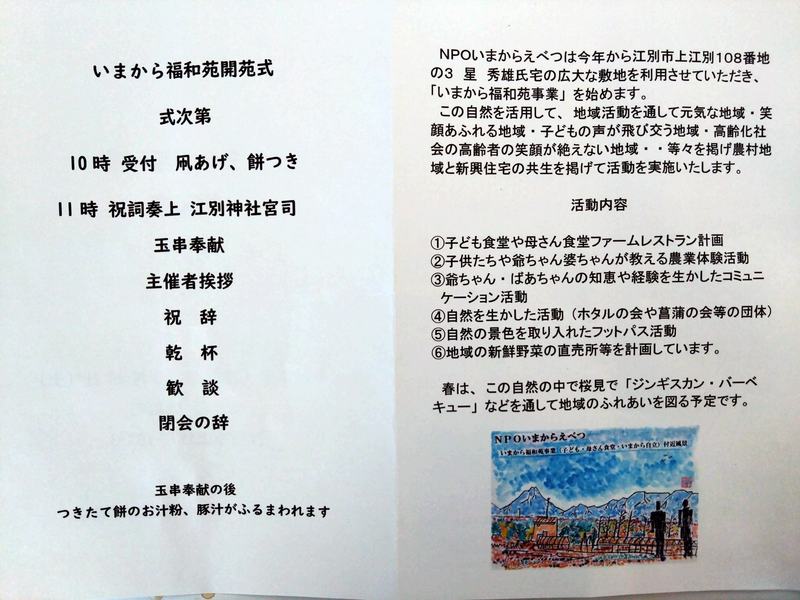 いまから福和苑開苑式
式次第
10時 受付　凧あげ、餅つき
11時 祝詞奏上 江別神社宮司
玉串奉献
主催者挨拶
祝　辞
乾　杯
歓　談
閉会の辞
玉串奉献の後
つきたて餅のお汁粉、豚汁がふるまわれます
NPOいまからえべつは今年から江別市上江別108番地
の3　星　秀雄氏宅の広大な敷地を利用させていただき、
「いまから福和苑事業」を始めます。
この自然を活用して、地域活動を通して元気な地域・笑
顔あふれる地域・子どもの声が飛び交う地域・高齢化社
会の高齢者の笑顔が絶えない地域・・等々を掲げ農村地
域と新興住宅の共生を掲げて活動を実施いたします。
活動内容
①子ども食堂や母さん食堂ファームレストラン計画
②子供たちや爺ちゃん婆ちゃんが教える農業体験活動
③爺ちゃん・ばあちゃんの知恵や経験を生かしたコミュニ
ケーション活動
④自然を生かした活動（ホタルの会や菖蒲の会等の団体）
⑤自然の景色を取り入れたフットパス活動
⑥地域の新鮮野菜の直売所等を計画しています。
春は、この自然の中で桜見で「ジンギスカン・バーベ
キュー」などを通して地域のふれあいを図る予定です。
NPOいまからえべつ
いまから福和苑事業（子ども・母さん食堂・いまから自立）付近風景